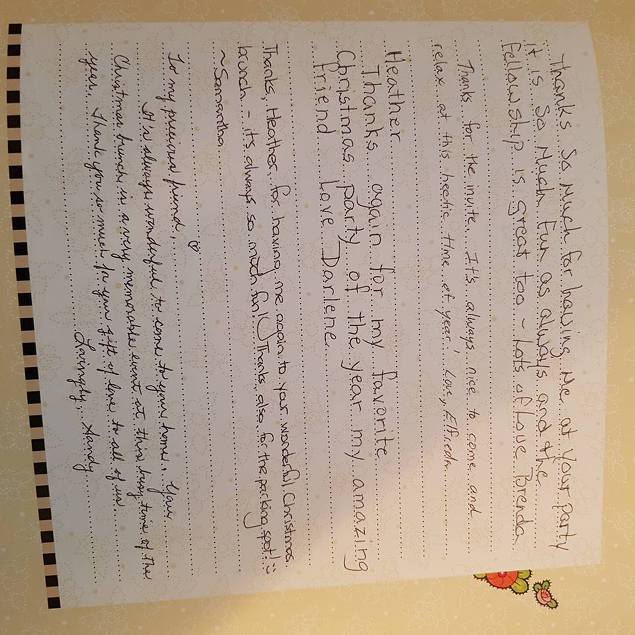 Thanks so much for having me at your party
it is so much fun as always and the
fellowship is great too - Lots of Love Brenda
Thanks for the invite. It's always nice to come and
relax at this hectic time of year! Love, Elfrieda
Heather
Thanks again for my favorite
Christmas party of the year my amazing
friend Love Darlene
Thanks, Heather, for having me again to your wonderful Christmas
brunch - it's always so much fun! Thanks also for the parking spot!
~Samantha
To my precious friend,
It is always wonderful to come to your home. Your
Christmas brunch is a very memorable event at this busy time of the
year. Thank you so much for your gift of love to all of us
Lovingly, Sandy